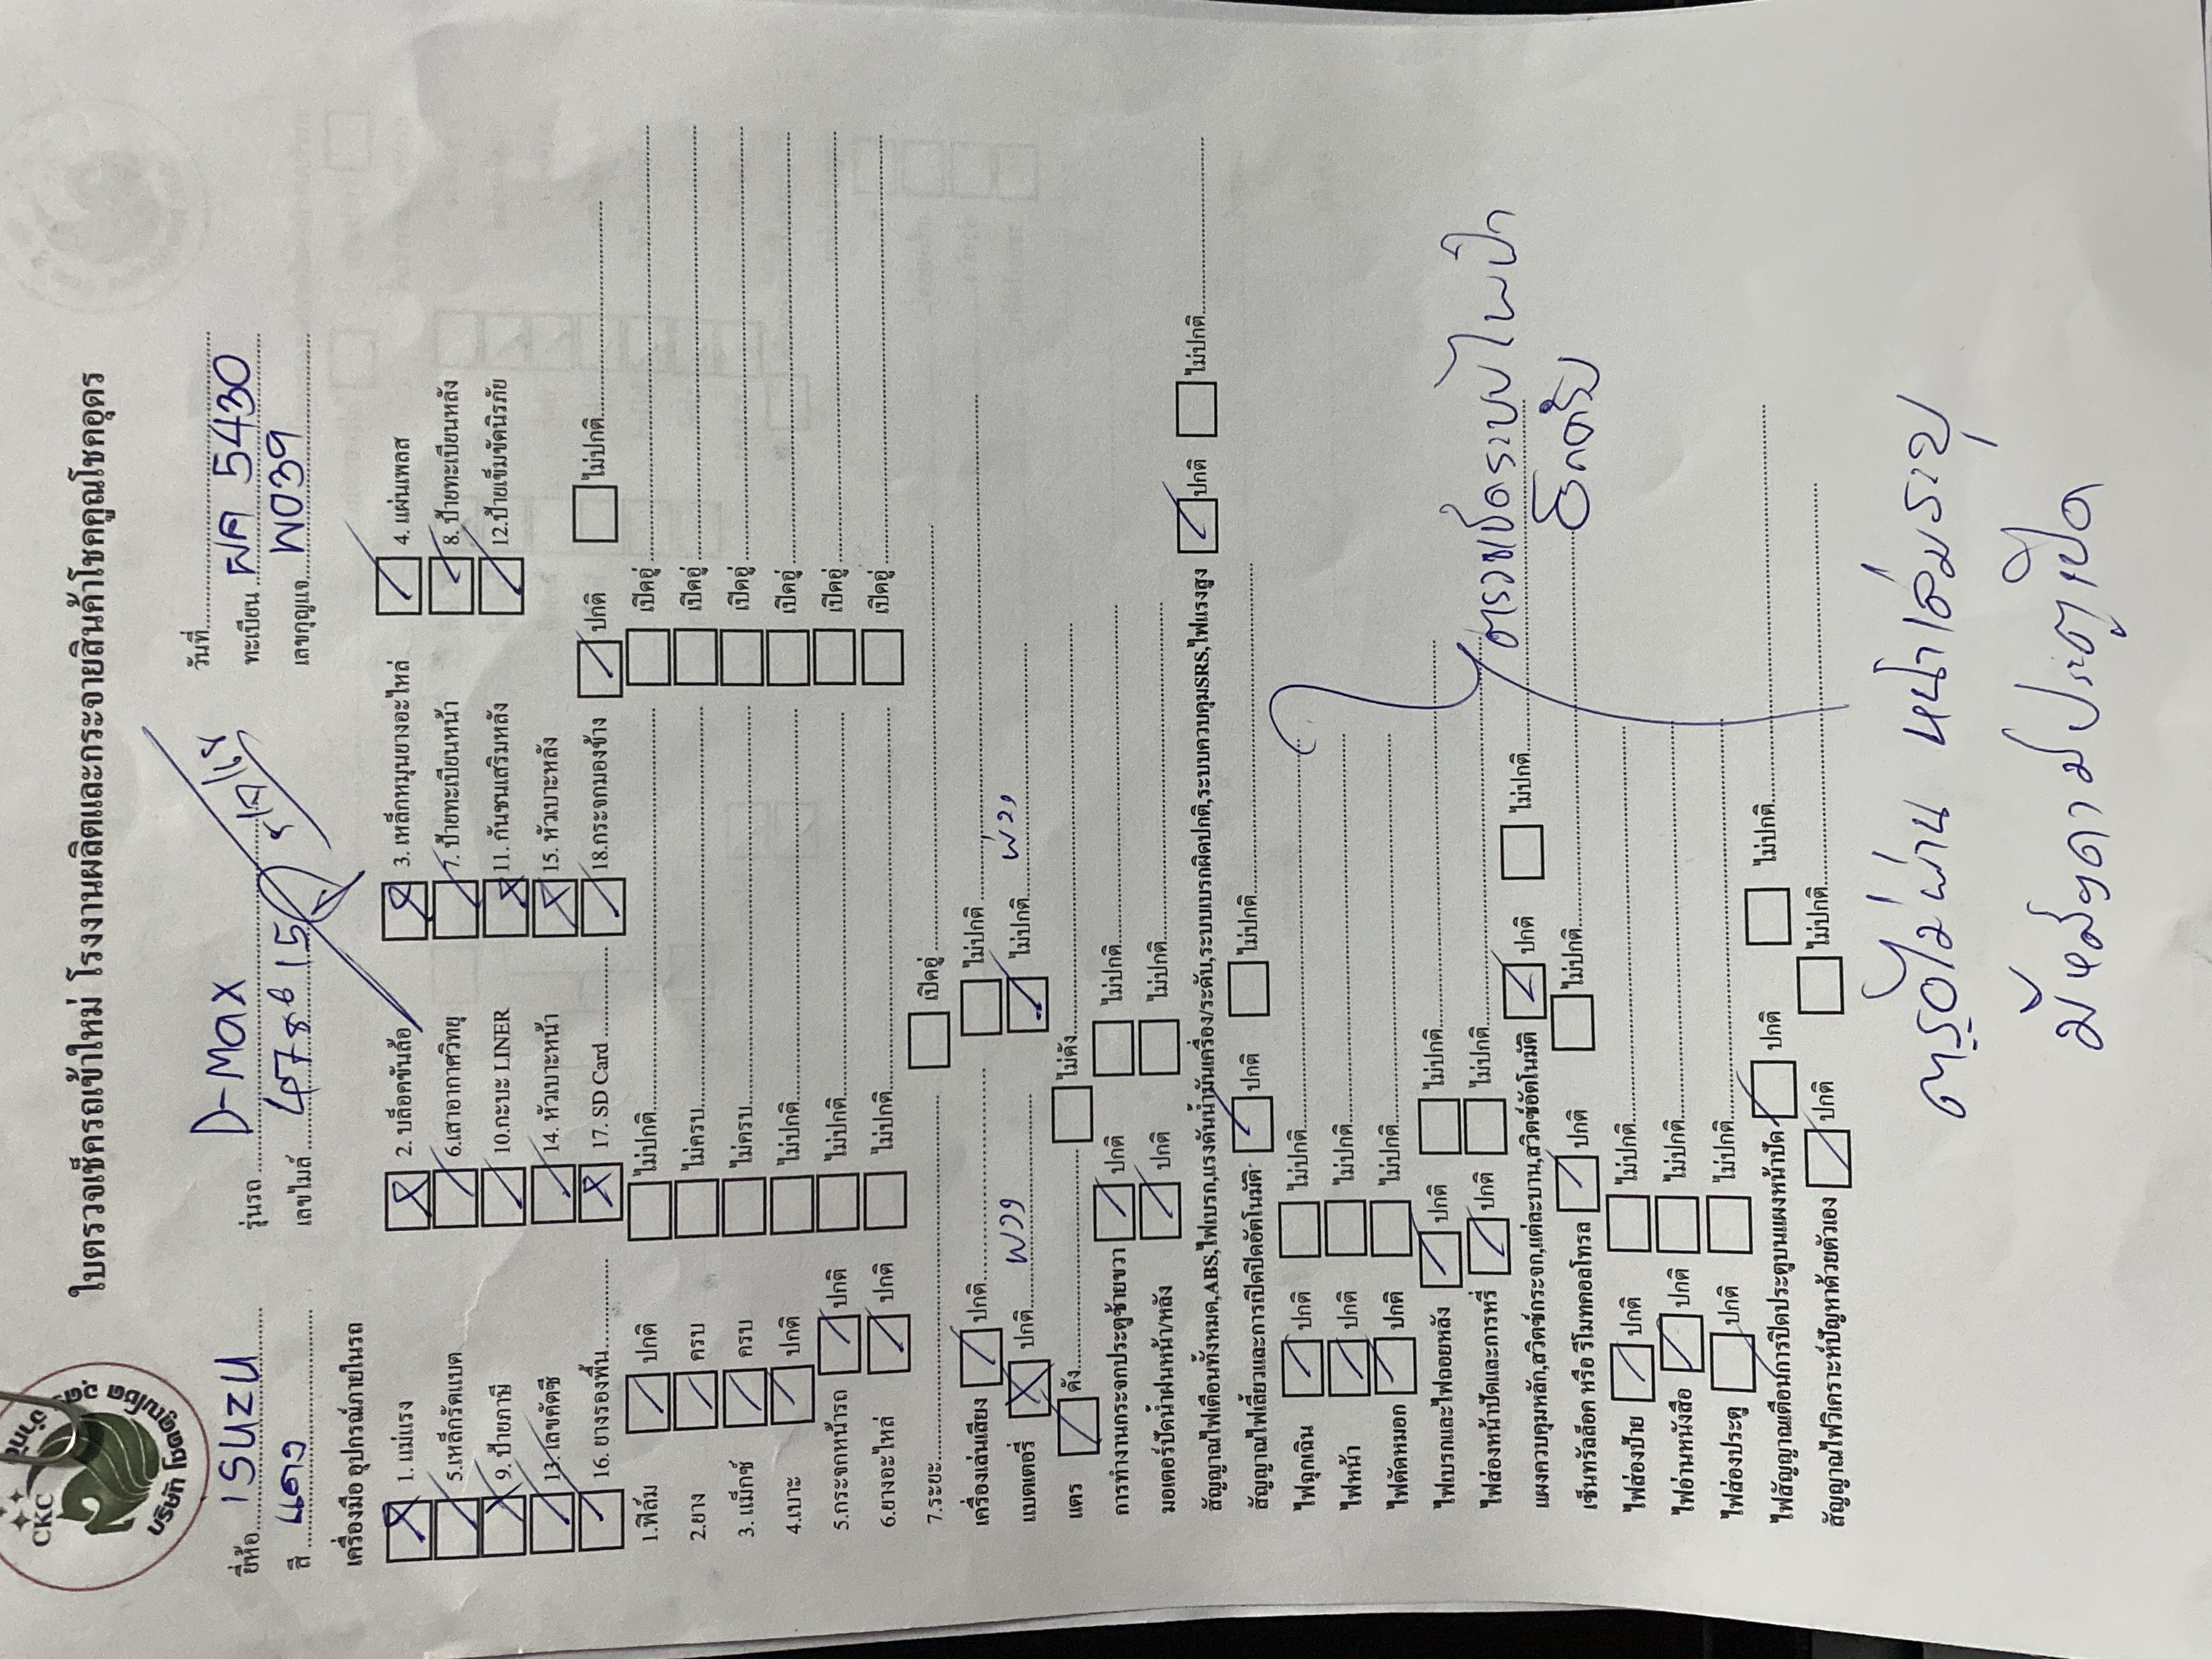 CKC
บริษัท โชคคูณโชค
ใบตรวจเช็ครถเข้าใหม่ โรงงานผลิตและกระจายสินค้าโชคคูณโชคอุดร
ยี่ห้อ ISUZU รุ่นรถ D-Max วันที่
สี แดง เลขไมล์ ทะเบียน ผค 5430
เลขกุญแจ W039
เครื่องมือ อุปกรณ์ภายในรถ
1. แม่แรง 2. บล็อคขันล้อ 3. เหล็กหมุนยางอะไหล่ 4. แผ่นเพลส
5.เหล็กรัดแบต 6.เสาอากาศวิทยุ 7. ป้ายทะเบียนหน้า 8. ป้ายทะเบียนหลัง
9. ป้ายภาษี 10.กะบะ LINER 11. กันชนเสริมหลัง 12.ป้ายเข็มขัดนิรภัย
13. เลขคัคซี 14. หัวเบาะหน้า 15. หัวเบาะหลัง
16. ยางรองพื้น 17. SD Card 18.กระจกมองข้าง ปกติ ไม่ปกติ
1.ฟิล์ม ปกติ ไม่ปกติ เปิดอู่
2.ยาง ครบ ไม่ครบ เปิดอู่
3. แม็กซ์ ครบ ไม่ครบ เปิดอู่
4.เบาะ ปกติ ไม่ปกติ เปิดอู่
5.กระจกหน้ารถ ปกติ ไม่ปกติ เปิดอู่
6.ยางอะไหล่ ปกติ ไม่ปกติ เปิดอู่
7.ระยะ เปิดอู่
เครื่องเล่นเสียง ปกติ ไม่ปกติ
แบตเตอรี่ ปกติ พวง ไม่ปกติ พ่วง
แตร ดัง ไม่ดัง
การทำงานกระจกประตูซ้ายขวา ปกติ ไม่ปกติ
มอเตอร์ปัดน้ำฝนหน้า/หลัง ปกติ ไม่ปกติ
สัญญาณไฟเตือนทั้งหมด,ABS,ไฟเบรก,แรงดันน้ำมันเครื่อง/ระดับ,ระบบเบรกผิดปกติ,ระบบควบคุมSRS,ไฟแรงสูง ปกติ ไม่ปกติ
สัญญาณไฟเลี้ยวและการเปิดปิดอัตโนมัติ ปกติ ไม่ปกติ
ไฟฉุกเฉิน ปกติ ไม่ปกติ
ไฟหน้า ปกติ ไม่ปกติ
ไฟตัดหมอก ปกติ ไม่ปกติ
ไฟเบรกและไฟถอยหลัง ปกติ ไม่ปกติ
ไฟส่องหน้าปัดและการหรี่ ปกติ ไม่ปกติ
ตรวจเช็คระบบไฟ
แผงควบคุมหลัก,สวิตซ์กระจก,แต่ละบาน,สวิตซ์อัตโนมัติ ปกติ ไม่ปกติ
อีกครั้ง
เซ็นทรัลล็อค หรือ รีโมทคอลโทรล ปกติ ไม่ปกติ
ไฟส่องป้าย ปกติ ไม่ปกติ
ไฟอ่านหนังสือ ปกติ ไม่ปกติ
ไฟส่องประตู ปกติ ไม่ปกติ
ไฟสัญญาณเตือนการปิดประตูบนแผงหน้าปัด ปกติ ไม่ปกติ
สัญญาณไฟวิเคราะห์ปัญหาด้วยตัวเอง ปกติ ไม่ปกติ
ตรอไม่ผ่าน
ประตูเปิด